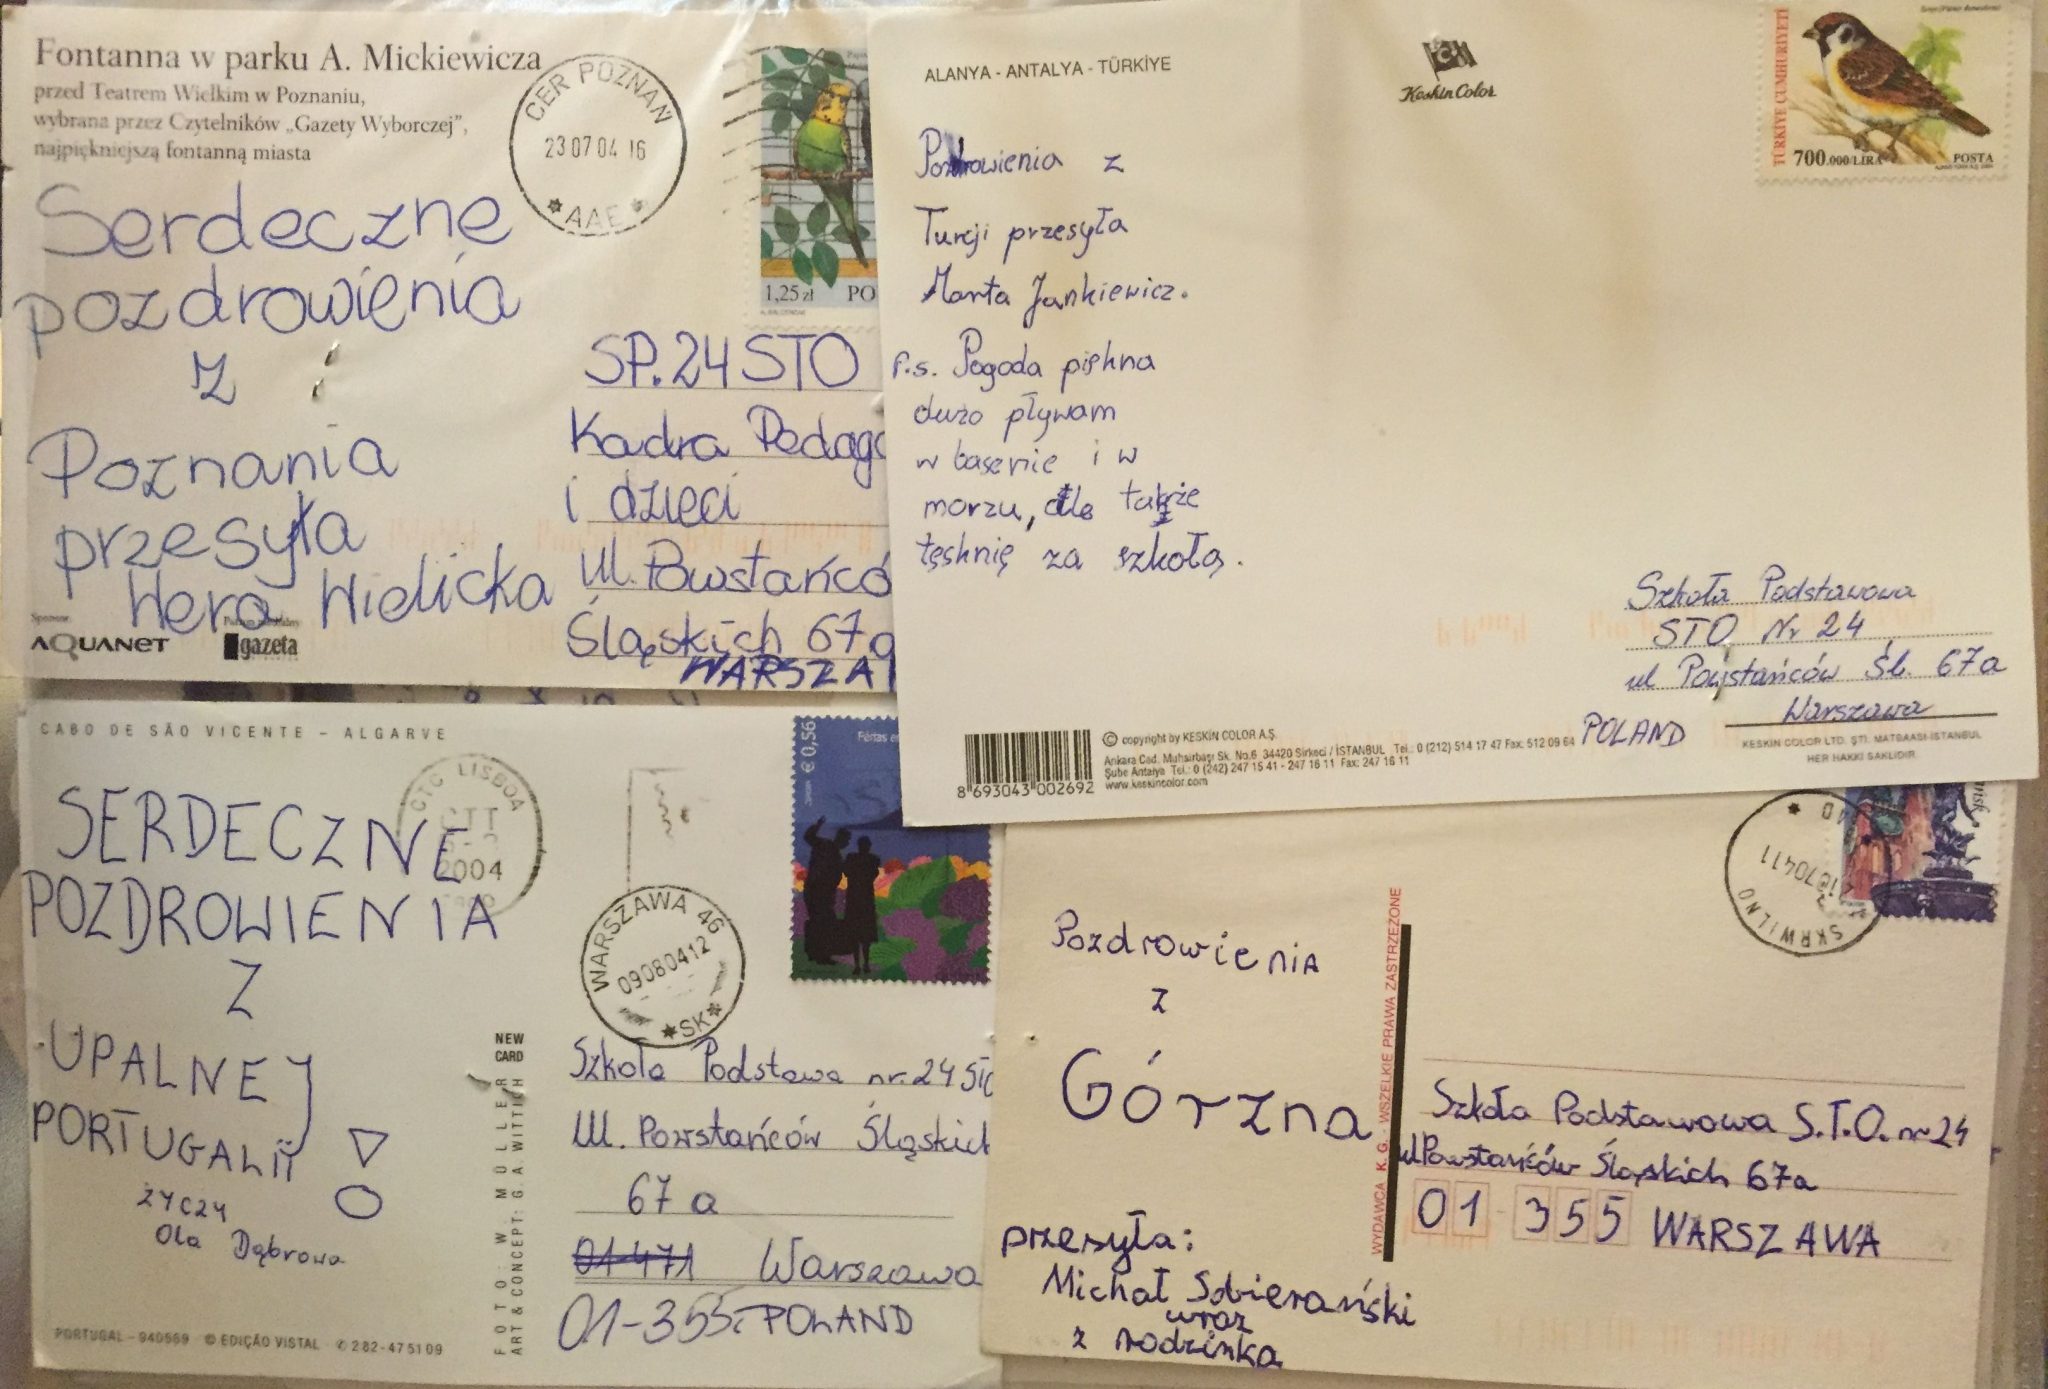 Fontanna w parku A. Mickiewicza
przed Teatrem Wielkim w Poznaniu,
wybrana przez Czytelników „Gazety Wyborczej”,
najpiękniejszą fontanną miasta
CER POZNAŃ
23 07 04 16
* AAE *
1,25 zł PO
Serdeczne
pozdrowienia
z
Poznania
przesyła
Wera Wielicka
Sponsor
AQUANET
gazeta
SP. 24 STO
Kadra Pedago
i dzieci
ul. Powstańcó
Śląskich 67a
WARSZA
ALANYA - ANTALYA - TÜRKİYE
Keskin Color
TÜRKİYE CUMHURİYETİ
700.000/LİRA
POSTA
Pozdrowienia z
Turcji przesyła
Marta Jankiewicz.
P.s. Pogoda piękna
dużo pływam
w basenie i w
morzu, ale także
tęsknię za szkołą.
Szkoła Podstawowa
STO Nr 24
ul Powstańców Śl. 67a
Warszawa
POLAND
8 693043 002692
© copyright by KESKİN COLOR A.Ş.
Ankara Cad. Muhsirbaşı Sk. No.6 34420 Sirkeci / İSTANBUL Tel.: 0 (212) 514 17 47 Fax: 512 09 64
Şube Antalya Tel.: 0 (242) 247 15 41 - 247 16 11 Fax: 247 16 11
www.keskincolor.com
KESKİN COLOR LTD. ŞTİ. MATBAASI-İSTANBUL
HER HAKKI SAKLIDIR
CABO DE SÃO VICENTE – ALGARVE
CTC LISBOA
CTT
2004
€ 0,56
Férias em
WARSZAWA 46
09080412
*SK*
SERDECZNE
POZDROWIENIA
Z
UPALNEJ
PORTUGALII
!
ŻYCZY
Ola Dąbrowa
NEW
CARD
FOTO: W. MÜLLER
ART & CONCEPT: G. A. WITTICH
Szkoła Podstawa nr. 24 STO
Ul. Powstańców Śląskich
67 a
01-471 Warszawa
01-355. POLAND
PORTUGAL – 940569 © EDIÇÃO VISTAL ✆ 282-475109
SKRWILNO
Pozdrowienia
z
Górzna
przesyła:
Michał Sobierański
wraz
z rodzinką
WYDAWCA K. G. WSZELKIE PRAWA ZASTRZEŻONE
Szkoła Podstawowa S.T.O. nr 24
ul Powstańców Śląskich 67a
01-355 WARSZAWA